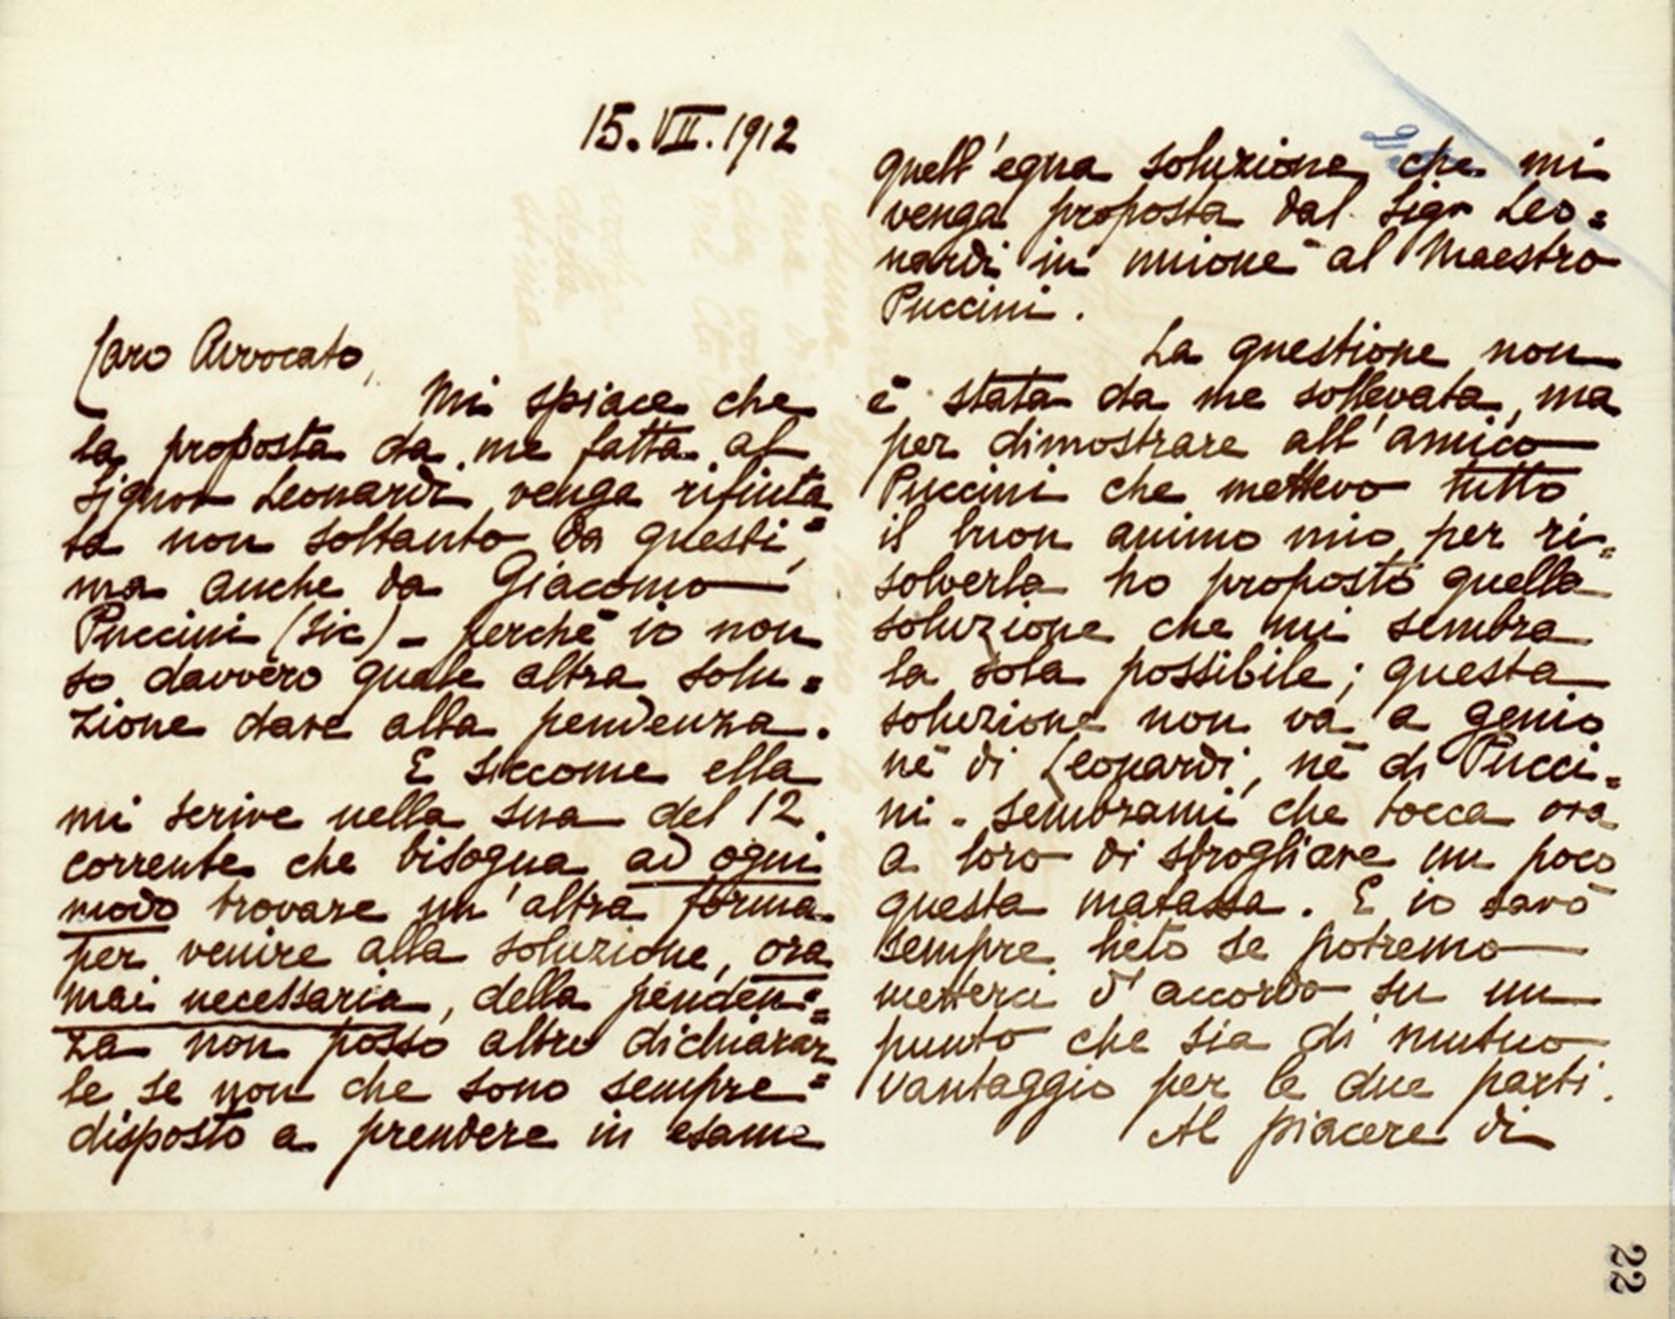 15. VII. 1912
Caro Avvocato,
Mi spiace che
la proposta da me fatta al
Signor Leonardi venga rifiuta=
ta non soltanto da questi,
ma anche da Giacomo
Puccini (sic) - perchè io non
so davvero quale altra solu=
zione dare alla pendenza.
E siccome ella
mi scrive nella sua del 12
corrente che bisogna ad ogni
modo trovare un'altra forma
per venire alla soluzione, ora
mai necessaria, della penden=
za non posso altro dichiarar
le se non che sono sempre=
disposto a prendere in esame
quell'egua soluzione che mi
venga proposta dal Sigr Leo=
nardi in unione al Maestro
Puccini.
La questione non
è stata da me sollevata, ma
per dimostrare all'amico
Puccini che mettevo tutto
il buon animo mio per ri=
solverla ho proposto quella
soluzione che mi sembra
la sola possibile; questa
soluzione non va a genio
nè di Leonardi, nè di Pucci=
ni - sembrami che tocca ora
a loro di sbrogliare un poco
questa matassa. E io sarò
sempre lieto se potremo
metterci d'accordo su un
punto che sia di mutuo
vantaggio per le due parti.
Al piacere di
22